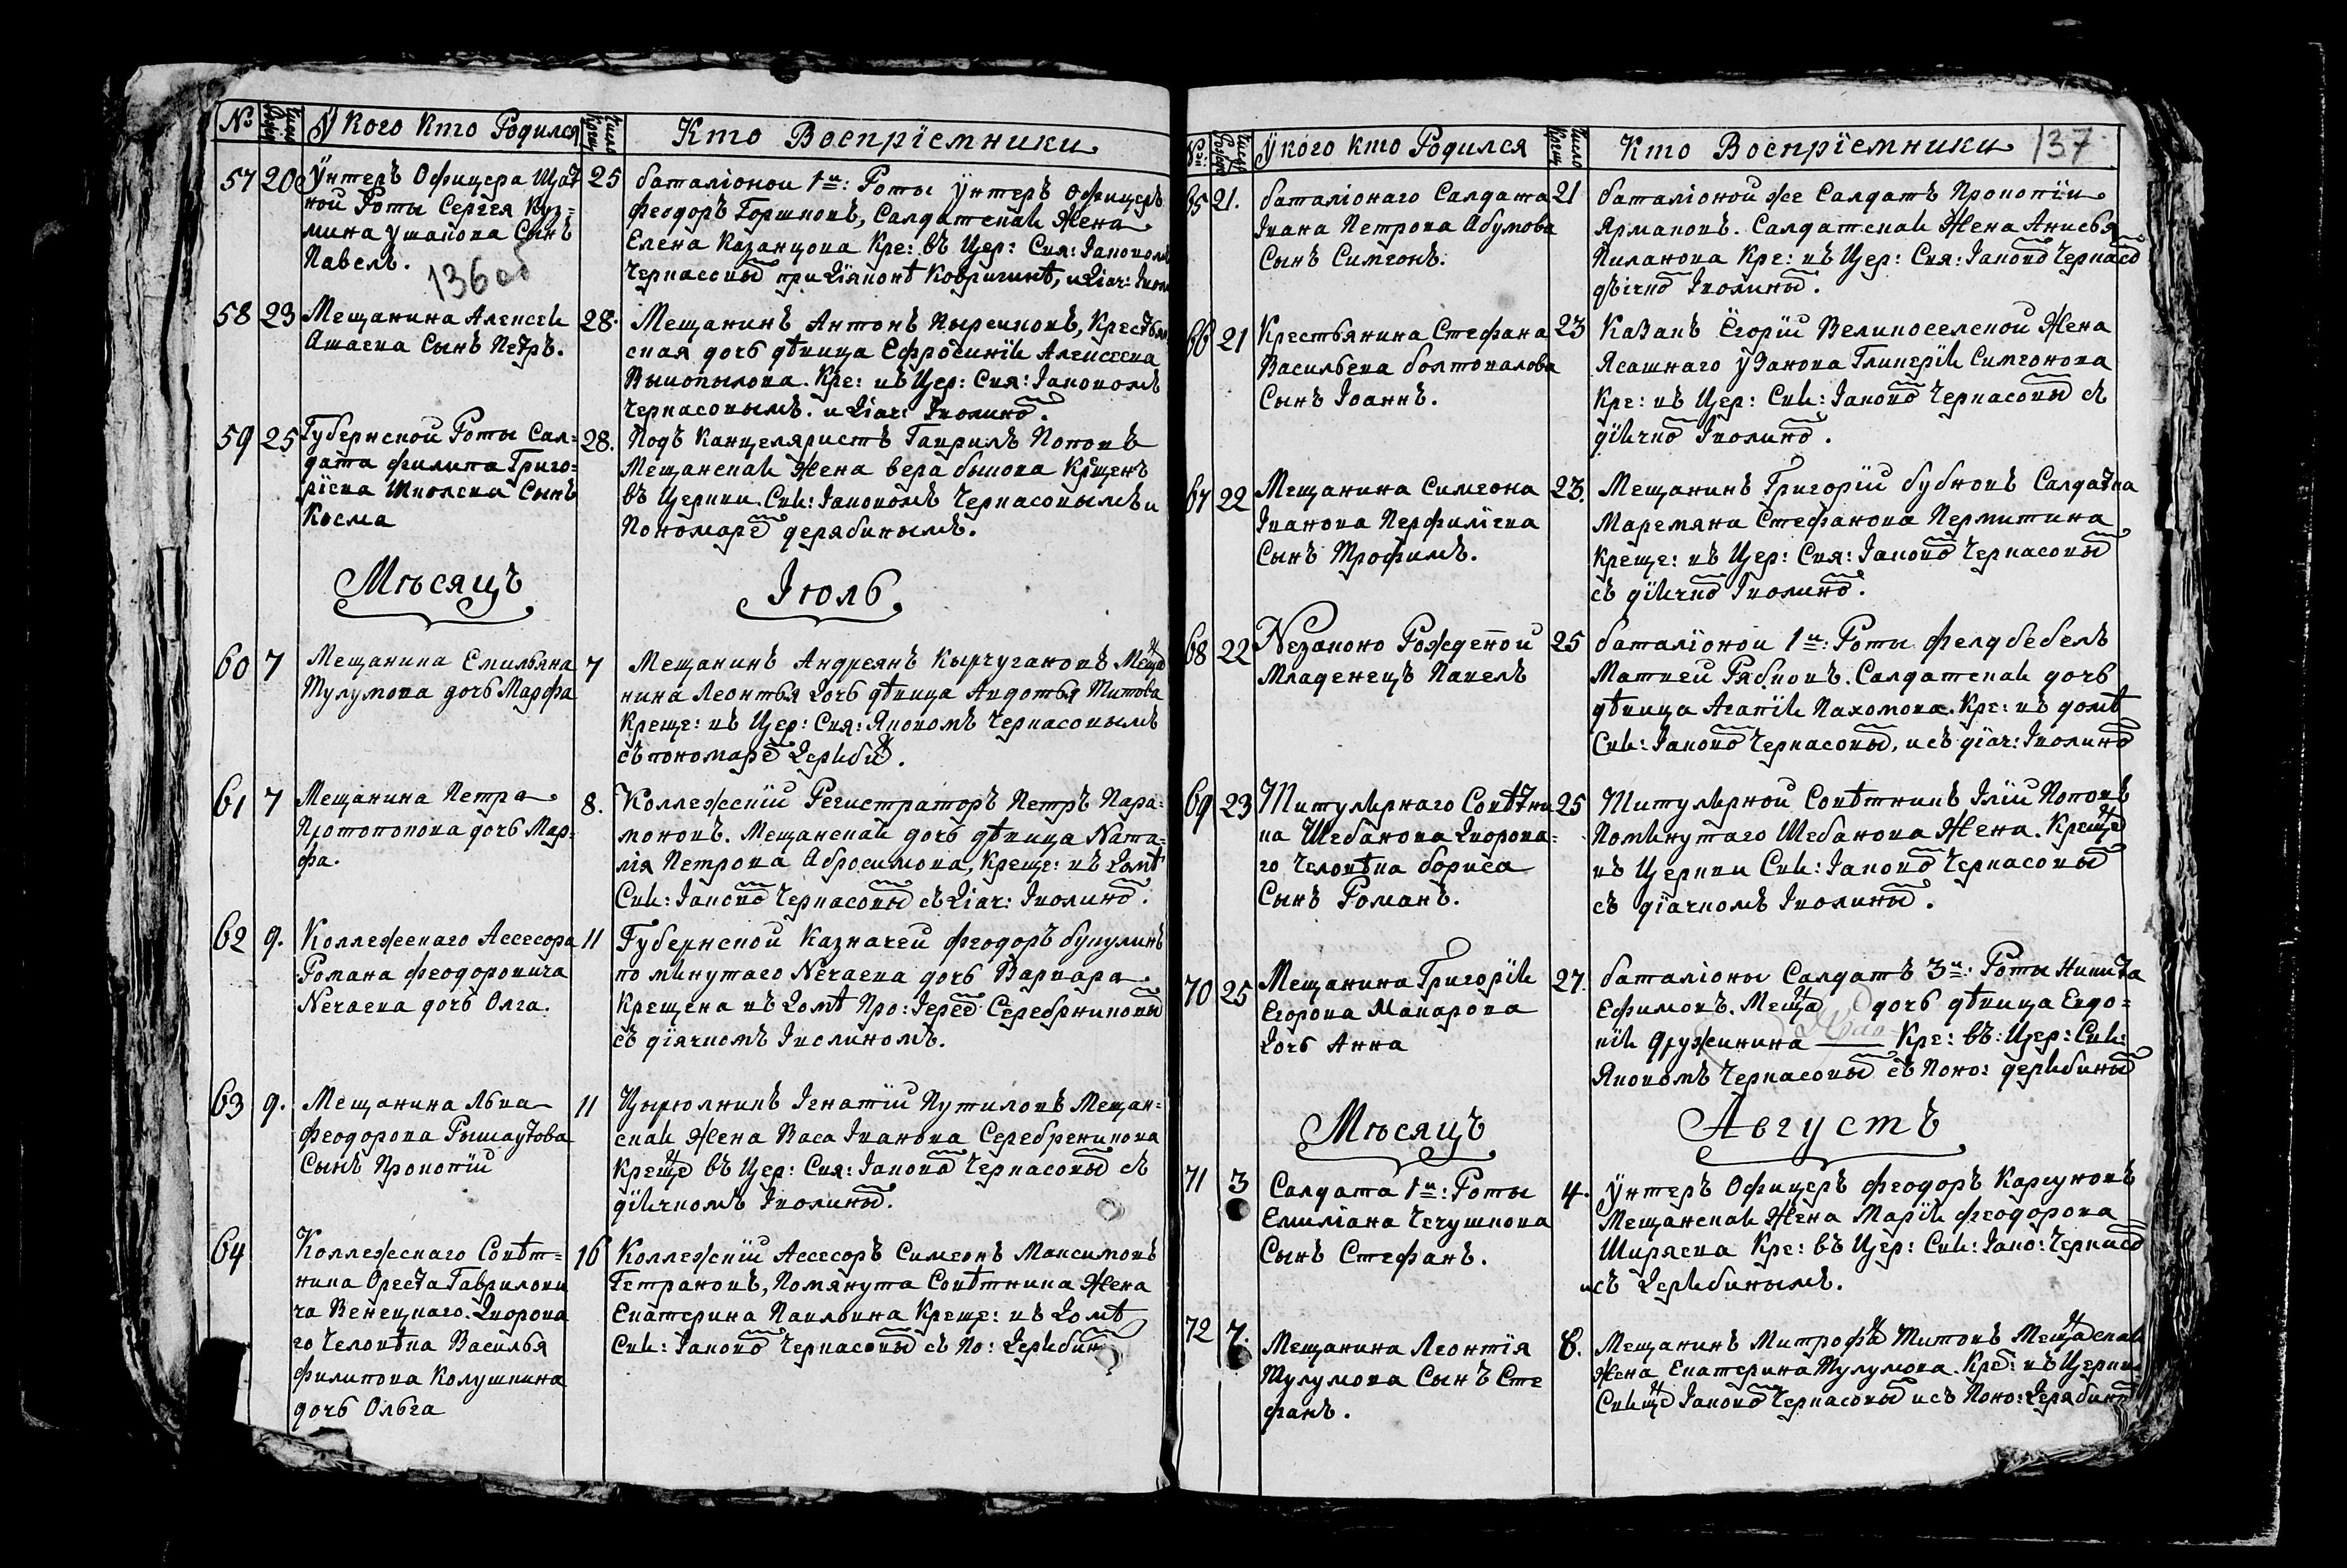 № число рожде У кого кто Родился число крещ Кто Воспрїемники
57 20 Унтеръ Офицера Штат
ной Роты Сергея Куз=
мина Ушакова Сынъ
Павелъ.
136об
25 баталіоной 1й: Роты Унтеръ Офицеръ
Феодоръ Горшковъ, Салдатская Жена
Елена Казанцова Кре: въ Цер: Свя: Іаковомъ
Черкасовы при Діяконѣ Ковригинѣ, и Діяч:
58 23 Мещанина Алексея
Ашаева Сынъ Петръ.
28. Мещанинъ Антонъ Пырсиковъ, Крестья
ская дочь дѣвица Ефросинія Алексеева
Выкопылова. Кре: въ Цер: Свя: Іаковомъ
Черкасовымъ. и Діяч: Іволино.
59 25 Губернской Роты Сал=
дата Филипа Григо=
ріева Школева Сынъ
Косма
28. Подъ Канцеляристъ Гаврилъ Поповъ
Мещанская Жена Вера Быкова Крещенъ
въ Церкви. Свя: Іаковомъ Черкасовымъ и
Пономаре дерябинымъ.
Мѣсяцъ Іюль
60 7 Мещанина Емильяна
Тулумова дочь Марфа
7 Мещанинъ Андреянъ Кырчугановъ Меща
нина Леонтья Дочь дѣвица Авдотья Титова
Креще: въ Цер: Свя: Яковомъ Черкасовымъ
съ пономаре Деряби.
61 7 Мещанина Петра
Протопопова дочь Мар=
фа.
8. Коллежскїй Регистраторъ Петръ Пара=
моновъ. Мещанская дочь дѣвица Ната=
лія Петрова Абросимова, Креще: въ Домѣ
Свя: Іаково Черкасовы съ Діяч: Іволино.
62 9. Коллежскаго Ассесора
Романа Феодоровича
Нечаева дочь Олга.
11 Губернской Казначей Феодоръ Букулинъ
помянутаго Нечаева дочь Варвара
Крещена въ Домѣ Про: Іерее Серебрниковы
съ діячкомъ Іволиномъ.
63 9. Мещанина Льва
Феодорова Рышаутова
Сынъ Прокопїй
11 Цырюлникъ Ігнатїй Путиловъ Мещан=
ская Жена Васа Іванова Серебреникова
Креще въ Цер: Свя: Іаково Черкасовы съ
діячкомъ Іволины.
64 Коллежскаго Совѣт=
ника Ореста Гаврилови
ча Венецкаго. Дворова
го Человѣка Василья
Филипова Колушкина
дочь Ольга
16 Коллежскїй Ассесоръ Симеонъ Максимовъ
Гетрановъ, Помянута Совѣтника Жена
Екатерина Павловна Креще: въ Домѣ
Свя: Іаково Черкасовы съ По: Дерябин
№ число рожде У кого кто Родился число крещ Кто Воспрїемники 137
65 21. баталіонаго Салдата
Івана Петрова Абумова
Сынъ Симеонъ.
21 баталіоной же Салдатъ Прокопїй
Ярмаковъ. Салдатская Жена Анисья
Пиланова Кре: въ Цер: Свя: Іаково Черкасо
дьячко Іволины.
66 21 Крестьянина Стефана
Васильева болтовалова
Сынъ Іоаннъ.
23 Казакъ Егорїй Великоселской Жена
Ясашнаго Узакова Гликерїя Симеонова
Кре: въ Цер: Свя: Іаково Черкасовы съ
діячко Іволино.
67 22 Мещанина Симеона
Іванова Перфиліева
Сынъ Трофимъ.
23 Мещанинъ Григорїй Бубновъ Салдатка
Маремяна Стефанова Пермитина
креще: въ Цер: Свя: Іаково Черкасовы
съ діячко Іволино.
68 22 Незаконо Рожденой
Младенецъ Павелъ
25 баталїоной 1й: Роты Фелдбебель
Матвей Рябковъ. Салдатская дочь
дѣвица Агапїя Пахомова. Кре: въ домѣ
Свя: Іаково Черкасовы, и съ діяч: Іволино
69 23 Титулярнаго Совѣтни
ка Шебанова Дворова=
го Человѣка бориса
Сынъ Романъ.
25 Титулярной Совѣтникъ Ілїй Поповъ
Помянутаго Шебанова Жена. Креще
въ Церкви Свя: Іаково Черкасовы
съ діячкомъ Іволины.
70 25 Мещанина Григорїя
Егорова Макарова
Дочь Анна
27. баталіоны Салдатъ 3й: Роты Никита
Ефимовъ. Меща дочь дѣвица Евдо=
кїя Дружинина Кре: въ: Цер: Свя:
Яковомъ Черкасовы съ Поно: дерябины
Мѣсяцъ Августъ
71 3 Салдата 1й: Роты
Емиліана Чечушкова
Сынъ Стефанъ.
4. Унтеръ Офицеръ Феодоръ Каргуновъ
Мещанская Жена Марїя Феодорова
Ширяева Кре: въ Цер: Свя: Іако: Черкасо
и съ Дерябинымъ.
72 7. Мещанина Леонтїя
Тулумова Сынъ Сте
фанъ.
8. Мещанинъ Митрофа Титовъ Мещаская
Жена Екатерина Тулумова. Кре: въ Церкви
Свяще Іаково Черкасовы и съ Поно: Дерябино